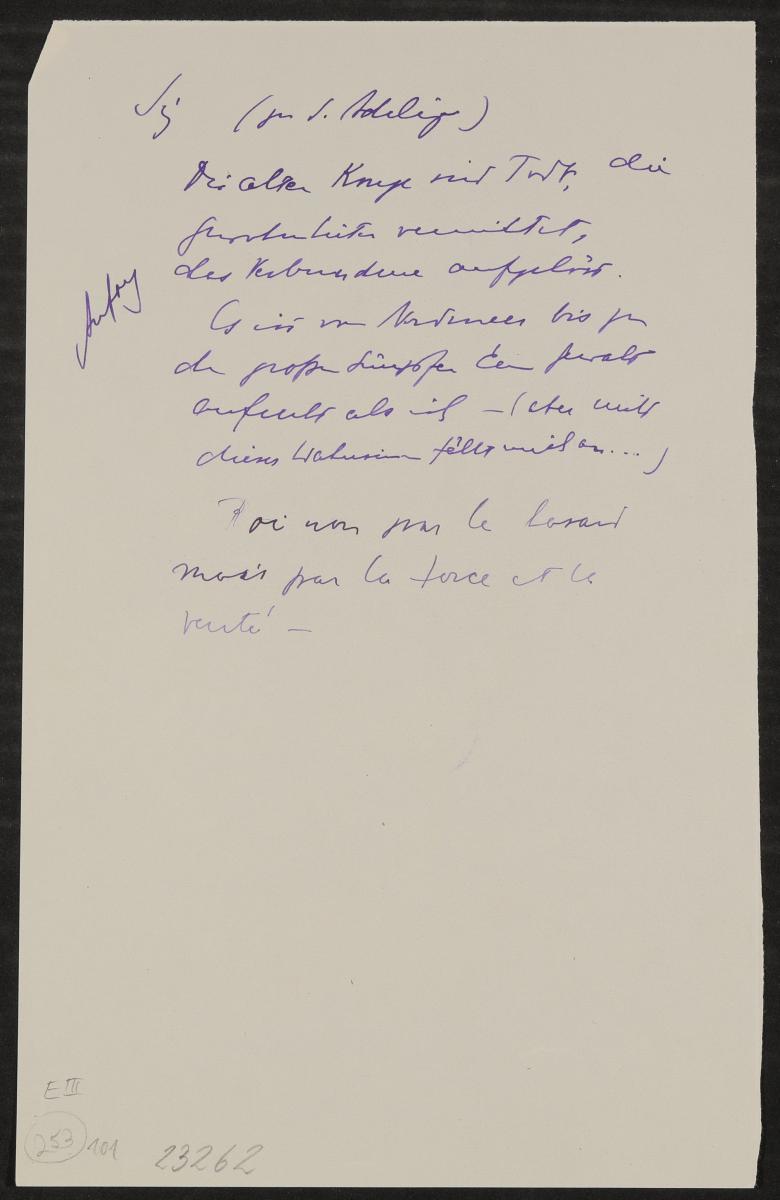 (zu d. Adelige)
Die alten Könige sind Todt, die
Gewohnheiten verwittert,
das Verbundene aufgelöst.
Es ist vom Nordmeer bis zu
den großen Sümpfen kein Gewalt
als ich – (aber mild
dieser Wahnsinn fällt mich an...)
Anfang
Roi non par le hasard
mais par la force et la
verité –
E III
253 101
23262